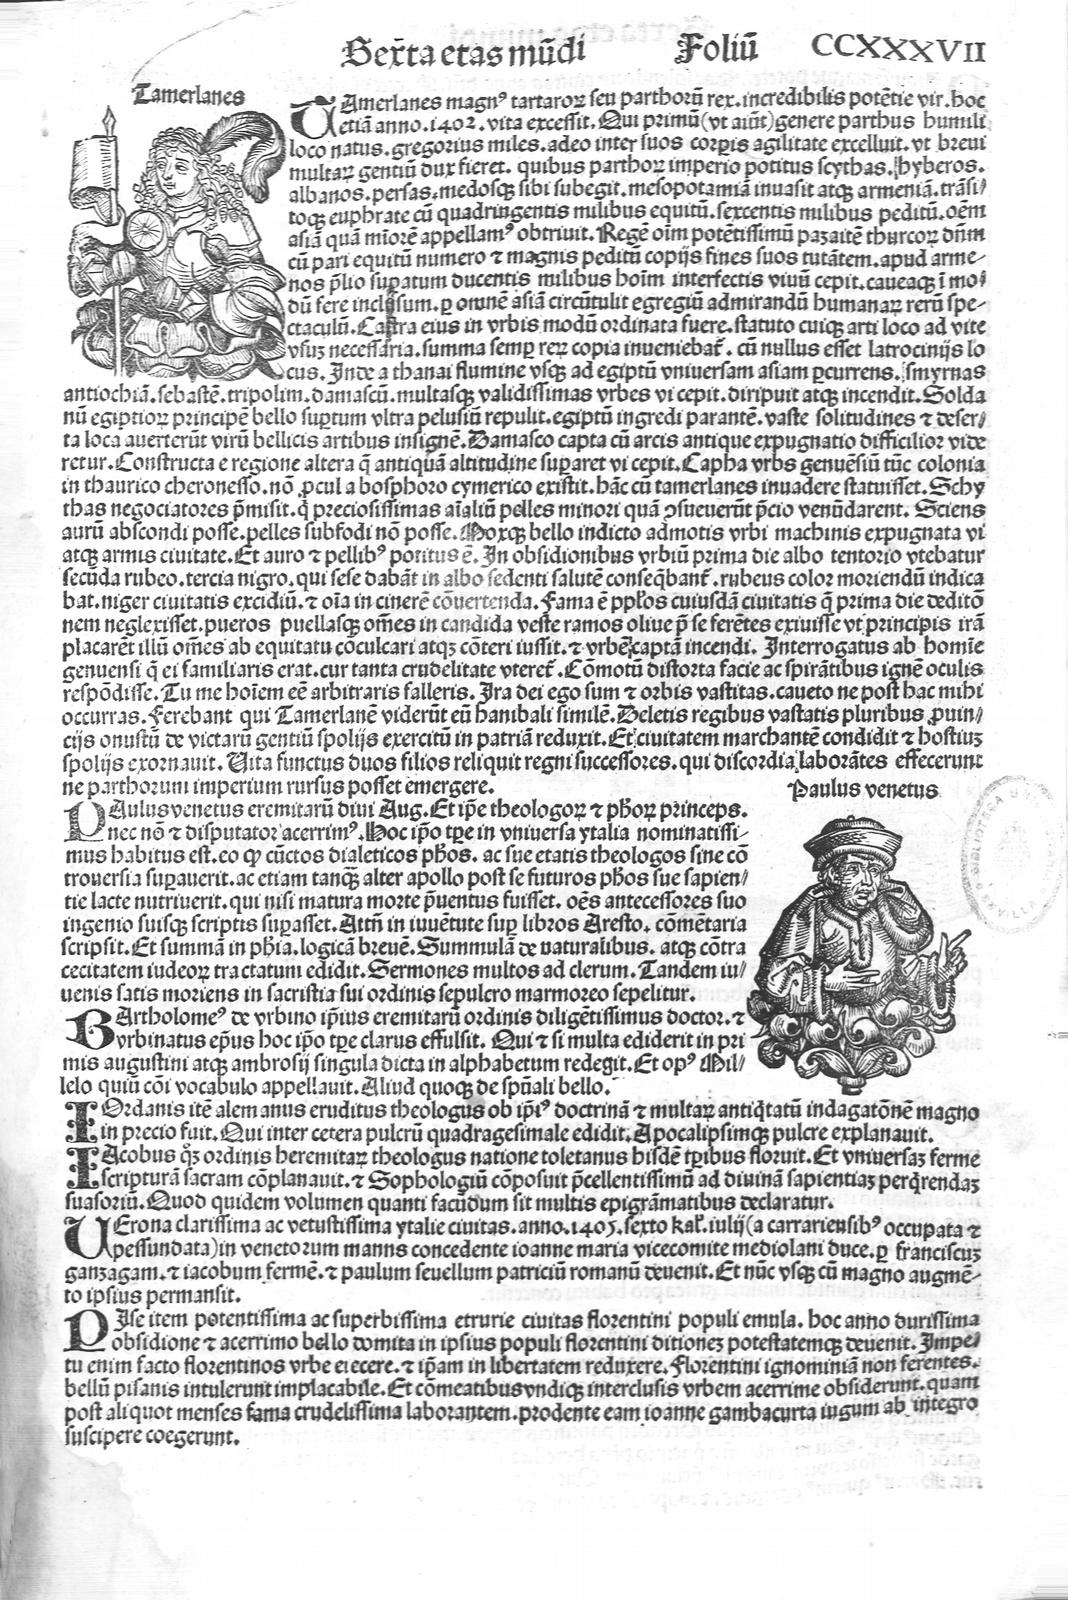 Sexta etas mūdi Foliū CCXXXVII
Tamerlanes
TAmerlanes magnꝰ tartaroꝝ seu parthorū rex. incredibilis potētie vir. hoc
etiā anno. 1402. vita excessit. Qui primū (vt aiūt) genere parthus humili
loco natus. gregorius miles. adeo inter suos corpis agilitate excelluit. vt brevi
multaꝝ gentiū dux fieret. quibus parthoꝝ imperio potitus scythas. hyberos.
albanos. persas. medosqꝫ sibi subegit. mesopotamiā inuasit atqꝫ armeniā. trāsi⸗
toqꝫ euphrate cū quadringentis milibus equitū. sexcentis milibus peditū. oēm
asiā quā mīorē appellamꝰ obtriuit. Regē oīm potētissimū pazaitē thurcoꝝ dn̄m
cū pari equitū numero ⁊ magnis peditū copijs fines suos tutātem. apud arme⸗
nos p̄lio supatum ducentis milibus hoīm interfectis viuū cepit. caueaqꝫ ī mo⸗
dū fere inclusum. ꝑ omnē asiā circūtulit egregiū admirandū humanaꝝ rerū spe⸗
ctaculū. Castra eius in vrbis modū ordinata fuere. statuto cuiqꝫ arti loco ad vite
vsuꝫ necessaria. summa semꝑ reꝝ copia inueniebat̄. cū nullus esset latrocinijs lo
cus. Inde a thanai flumine vsqꝫ ad egiptū vniuersam asiam ꝑcurrens. smyrnas
antiochiā. sebastē. tripolim. damascū. multasqꝫ validissimas vrbes vi cepit. diripuit atqꝫ incendit. Solda
nū egiptioꝝ principē bello suptum vltra pelusiū repulit. egiptū ingredi parantē. vaste solitudines ⁊ deser⸗
ta loca auerterūt virū bellicis artibus insignē. Damasco capta cū arcis antique expugnatio difficilior vide
retur. Constructa e regione altera q̄ antiquā altitudine supꝑaret vi cepit. Capha vrbs genuēsiū tūc colonia
in thaurico cheronesso. nō ꝓcul a bosphoro cymerico existit. hāc cū tamerlanes inuadere statuisset. Schy
thas negociatores p̄misit. q̄ preciosissimas aīaliū pelles minori quā ꝯsueuerūt p̄cio venūdarent. Sciens
aurū abscondi posse. pelles subfodi nō posse. Moxqꝫ bello indicto admotis vrbi machinis expugnata vi
atqꝫ armis ciuitate. Et auro ⁊ pellibꝰ potitus ē. In obsidionibus vrbiū prima die albo tentorio vtebatur
secūda rubeo. tercia nigro. qui sese dabāt in albo sedenti salutē conseq̄bant̄. rubeus color moriendū indica
bat. niger ciuitatis excidiū. ⁊ oīa in cinerē cōuertenda. Fama ē pp̄los cuiusdā ciuitatis q̄ prima die deditō
nem neglexisset. pueros puellasqꝫ om̄es in candida veste ramos oliue p̄ se ferētes exiuisse vt principis irā
placarēt illū om̄es ab equitatu cōculcari atqꝫ cōteri iussit. ⁊ vrbē captā incendi. Interrogatus ab homīe
genuensi q̄ ei familiaris erat. cur tanta crudelitate vteret̄. Cōmotū distorta facie ac spirātibus ignē oculis
respōdisse. Tu me hoīem eē arbitraris falleris. Ira dei ego sum ⁊ orbis vastitas. caueto ne post hac mihi
occurras. Ferebant qui Tamerlanē viderūt eū hanibali similē. Deletis regibus vastatis pluribus ꝓuin⸗
cijs onustū de victarū gentiū spolijs exercitū in patriā reduxit. Et ciuitatem marchantē condidit ⁊ hostiuꝫ
spolijs exornauit. Vita functus duos filios reliquit regni successores. qui discordia laborātes effecerunt
ne parthorum imperium rursus posset emergere. Paulus venetus
PAulus venetus eremitarū diui Aug. Et ip̄e theologoꝝ ⁊ ph̄oꝝ princeps.
nec nō ⁊ disputator acerrimꝰ. Hoc ip̄o tp̄e in vniuersa ytalia nominatissi⸗
mus habitus est. eo ꝙ cūctos dialeticos ph̄os. ac sue etatis theologos sine cō
trouersia supꝑauerit. ac etiam tanqꝫ alter apollo post se futuros ph̄os sue sapien⸗
tie lacte nutriuerit. qui nisi matura morte p̄uentus fuisset. oēs antecessores suo
ingenio suisqꝫ scriptis supꝑasset. Attn̄ in iuuētute suꝑ libros Aresto. cōmētaria
scripsit. Et summā in ph̄ia. logicā breuē. Summulā de naturalibus. atqꝫ cōtra
cecitatem iudeoꝝ tractatum edidit. Sermones multos ad clerum. Tandem iu⸗
uenis satis moriens in sacristia sui ordinis sepulcro marmoreo sepelitur.
BArtholomeꝰ de vrbino ip̄ius eremitarū ordinis diligētissimus doctor. ⁊
vrbinatus ep̄us hoc ip̄o tp̄e clarus effulsit. Qui ⁊ si multa ediderit in pri
mis augustini atqꝫ ambrosij singula dicta in alphabetum redegit. Et opꝰ Mil⸗
lelo quiū cōi vocabulo appellauit. Aliud quoqꝫ de spūali bello.
IOrdanis itē alemanus eruditus theologus ob ip̄iꝰ doctrinā ⁊ multaꝝ antiq̄tatū indagatōnē magno
in precio fuit. Qui inter cetera pulcrū quadragesimale edidit. Apocalipsimqꝫ pulcre explanauit.
IAcobus q̄ꝫ ordinis heremitaꝝ theologus natione toletanus hisdē tp̄ibus floruit. Et vniuersaꝫ ferme
scripturā sacram cōplanauit. ⁊ Sophologiū cōposuit p̄cellentissimū ad diuinā sapientiaꝫ perq̄rendaꝫ
suasoriū. Quod quidem volumen quanti facūdum sit multis epigrāmatibus declaratur.
VErona clarissima ac vetustissima ytalie ciuitas. anno. 1405. sexto kal̄. iulij (a carrariensibꝰ occupata ⁊
pessundata) in venetorum manns concedente ioanne maria vicecomite mediolani duce. ꝑ franciscuꝫ
ganzagam. ⁊ iacobum fermē. ⁊ paulum seuellum patriciū romanū deuenit. Et nūc vsqꝫ cū magno augmē⸗
to ipsius permansit.
PIse item potentissima ac superbissima etrurie ciuitas florentini populi emula. hoc anno durissima
obsidione ⁊ acerrimo bello domita in ipsius populi florentini ditioneꝫ potestatemqꝫ deuenit. Impe⸗
tu enim facto florentinos vrbe eiecere. ⁊ ip̄am in libertatem reduxere. Florentini ignominiā non ferentes.
bellū pisanis intulerunt implacabile. Et cōmeatibus vndiqꝫ interclusis vrbem acerrime obsiderunt. quam
post aliquot menses fama crudelissima laborantem. prodente eam ioanne gambacurta iugum ab integro
suscipere coegerunt.